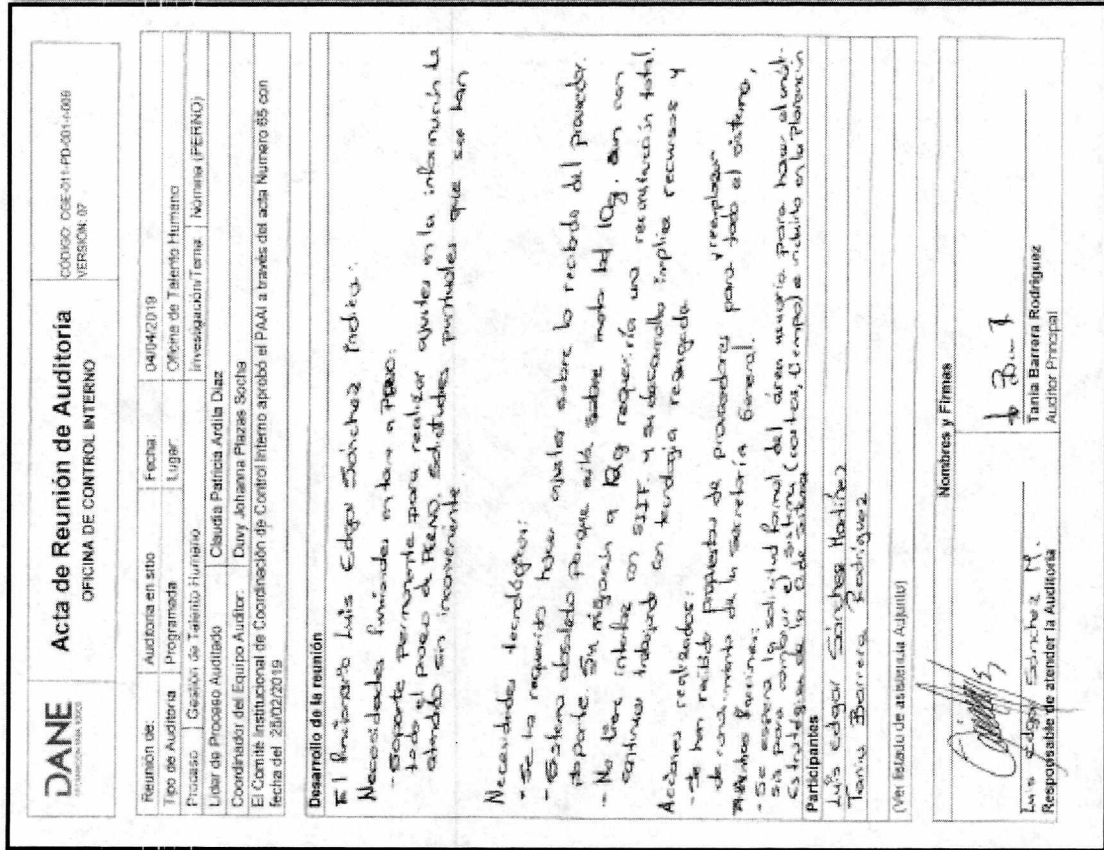 DANE
INFORMACIÓN PARA TODOS
Acta de Reunión de Auditoría
OFICINA DE CONTROL INTERNO
CÓDIGO: CGE-011-PD-001-r-009
VERSIÓN: 07
Reunión de: Auditoria en sitio Fecha: 04/04/2019
Tipo de Auditoria Programada Lugar Oficina de Talento Humano
Proceso Gestión de Talento Humano Investigación/Tema Nómina (PERNO)
Lider de Proceso Auditado Claudia Patricia Ardila Diaz
Coordinador del Equipo Auditor: Duvy Johanna Plazas Socha
El Comité Institucional de Coordinación de Control Interno aprobó el PAAI a través del acta Numero 65 con
fecha del 28/02/2019
Desarrollo de la reunión
El funcionario Luis Edgar Sánchez indica:
Necesidades funcionales entorno a PERNO:
- Soporte permanente para realizar ajustes en la información de
todo el proceso de PERNO. Solicitudes puntuales que se han
atendido sin inconveniente
Necesidades tecnológicas:
- Se ha requerido hacer ajustes sobre lo recibido del proveedor.
- Sistema obsoleto porque está sobre motor bd 10g. aun con
soporte. Su migración a 12g requeriría una reconstrucción total.
- No tiene interfase con SIIF y su desarrollo implica recursos y
continuar trabajando con tecnología rezagada.
Acciones realizadas:
- Se han recibido propuestas de proveedores para reemplazar
de conocimiento de la Secretaría General. para todo el sistema,
- Se espera la solicitud formal del área usuaria para hacer el análi-
sis para cambiar el sistema (costos, tiempo) e incluirlo en la Planeación
Estratégica de la O. de Sistemas
Participantes
Luis Edgar Sánchez Martínez
Tania Barrera Rodríguez
(Ver listado de asistencia Adjunto)
Nombres y Firmas
Luis Edgar Sánchez M.
Responsable de atender la Auditoría
Tania Barrera Rodriguez
Auditor Principal